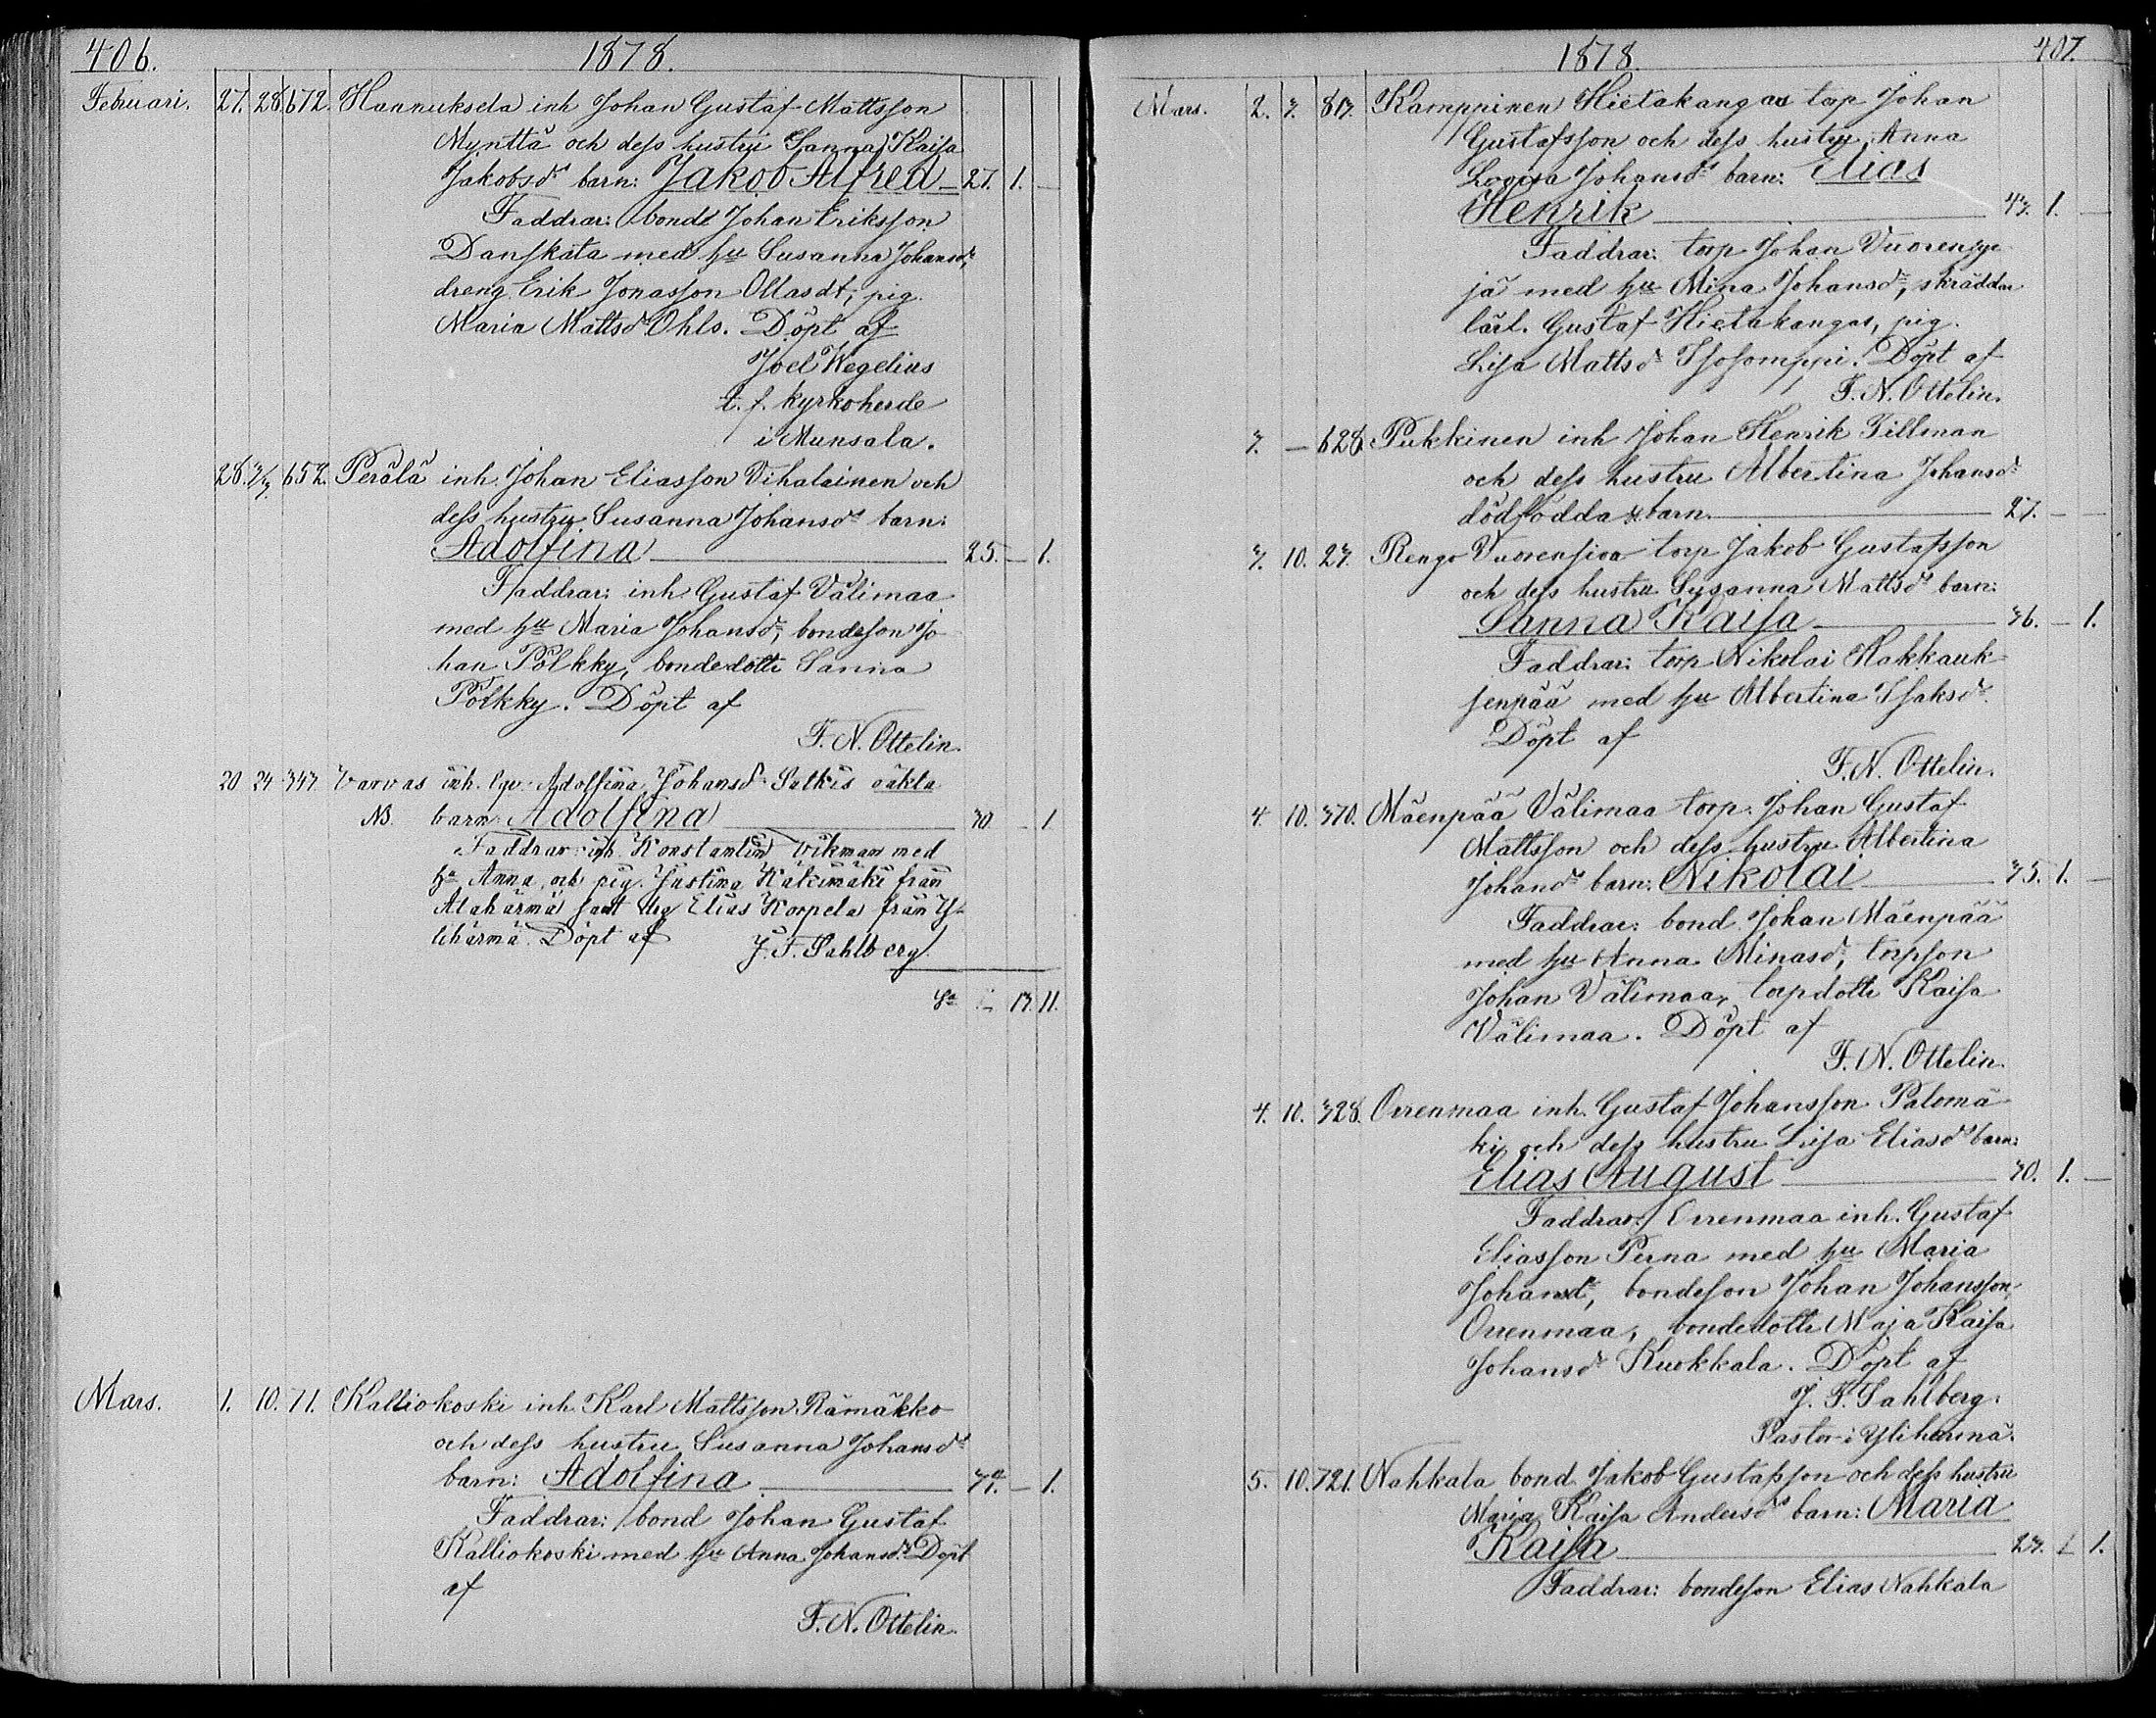 406.
1878.
Februari. 27. 28. 672. Hannuksela inh Johan Gustaf Mattsson
Mynttä och dess hustru Sanna Kaisa
Jakobsdr barn: Jakob Alfred 27. 1. —
Faddrar: bond Johan Eriksson
Danskata med hu Susanna Johansdr,
dreng Erik Jonasson Ollasdt, pig.
Maria Mattsdr Ohls. Döpt af
Joel Wegelius
t. f. kyrkoherde
i Munsala.
28. 3/3. 652. Perälä inh. Johan Eliasson Vihalainen och
dess hustru Susanna Johansdr barn:
Adolfina 25. — 1.
Faddrar: inh Gustaf Välimaa
med hu Maria Johansdr, bondeson Jo
han Pölkky, bondedottr Sanna
Pölkky. Döpt af
F. N. Ottelin.
20 24 343 Varvas inh. Adolfina Johansdr Salkis oäkta
NB. barn: Adolfina 30 — 1
Faddrar: inh. Konstantin Vikman med
hu Anna, och pig. Justina Käkimäki från
Alahärmä samt drg Elias Korpela från Y-
lihärmä. Döpt af J. F. Sahlberg.
Sa — 13. 11.
Mars. 1. 10. 71. Kalliokoski inh. Karl Mattsson Rämäkko
och dess hustru Susanna Johansdr
barn: Adolfina 34. — 1.
Faddrar: bond Johan Gustaf
Kalliokoski med hu Anna Johansdr. Döpt
af
F. N. Ottelin.
1878.
407.
Mars. 2. 3. 813. Kamppinen Hietakangas torp Johan
Gustafsson och dess hustru Anna
Lovisa Johansdr barn: Elias
Henrik 43. 1. —
Faddrar: torp Johan Vuorensyr
jä med hu Mina Johansdr, skräddar
lärl. Gustaf Hietakangas, pig.
Lisa Mattsdr Isosomppi. Döpt af
F. N. Ottelin.
3. — 628. Pukkinen inh Johan Henrik Tillman
och dess hustru Albertina Johansdr
dödfödda barn. 27. — —
3. 10. 23. Rengo Vuorensivu torp Jakob Gustafsson
och dess hustru Susanna Mattsdr barn:
Sanna Kaisa 36. — 1.
Faddrar: torp Nikolai Kakkauk
senpää med hu Albertina Isaksdr.
Döpt af
F. N. Ottelin.
4. 10. 370. Mäenpää Välimaa torp. Johan Gustaf
Mattsson och dess hustru Albertina
Johansdr barn: Nikolai 35. 1. —
Faddrar: bond Johan Mäenpää
med hu Anna Minasdr, torpson
Johan Välimaa, torpdottr Kaisa
Välimaa. Döpt af
F. N. Ottelin.
4. 10. 328. Orrenmaa inh. Gustaf Johansson Palomä
ki och dess hustru Lisa Eliasdr barn:
Elias August 30. 1. —
Faddrar: Orrenmaa inh. Gustaf
Eliasson Perna med hu Maria
Johansdt, bondeson Johan Johansson
Orrenmaa, bondedottr Maja Kaisa
Johansdr Kuokkala. Döpt af
J. F. Sahlberg.
Pastor i Ylihärmä.
5. 10. 721. Nahkala bond Jakob Gustafsson och dess hustru
Maria Kaisa Andersdr barn: Maria
Kaisa 23. — 1.
Faddrar: bondeson Elias Nahkala